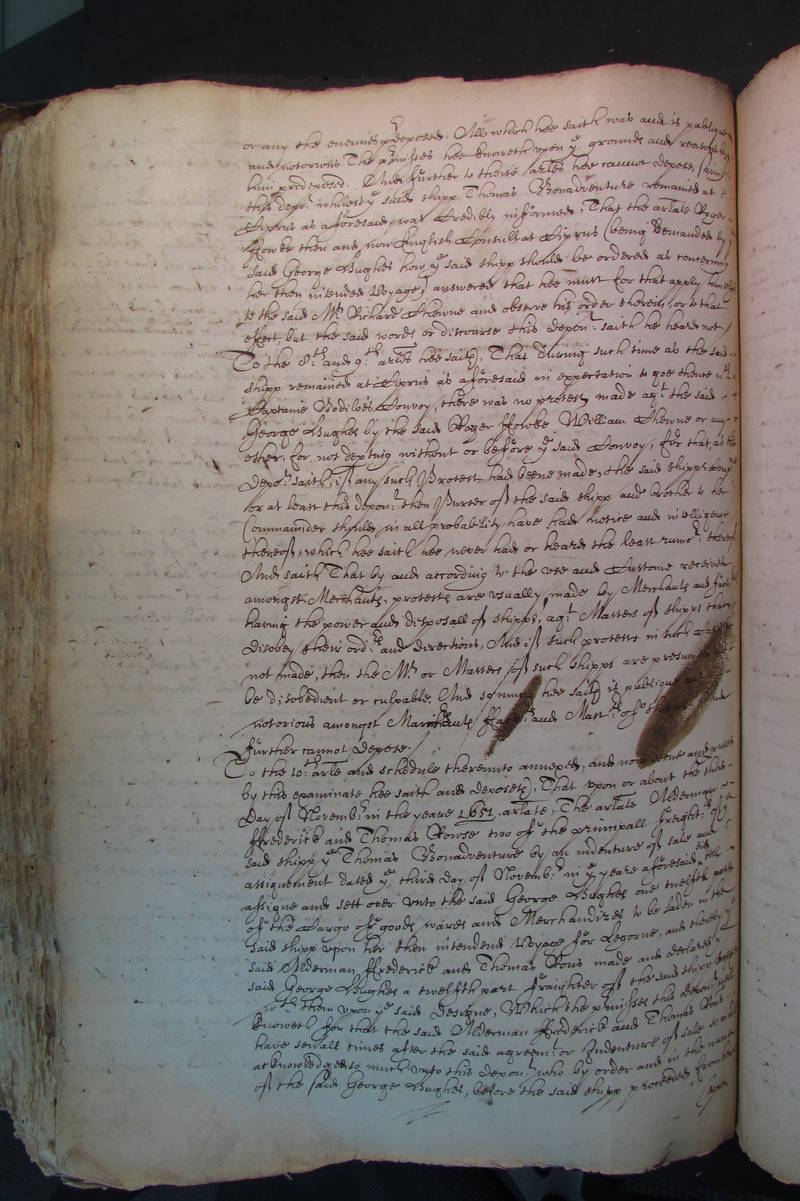 or any the enemies p:rdeposed. All which hee saith was and is publique
and notorious The p:rmisses hee knoweth upon y:e grounds and reasons by
him predeposed. And further to these arles hee cannot depose, saving
this depo:t whilest y:e said shipp Thomas Bonadventure remained at
Ciprus as aforesaid, was Credibly informed, That the arlate Roger
Fowke then and now English Consull at Ciprus (being demanded by y:e
said George Hughes how y:e said shipp should be ordered as concerning
her then intended Voyage) answered that hee must for that apply himselfe
to the said M:r Richard Chowne and observe his order therein, or to that
effect, but the said words or discourse this depon:t saith he heard not /
To the 8:th and 9:th arles hee saith, That during such time as the said
shipp remained at Ciprus as aforesaid in expectation to goe thence w:th
Captaine Bodiloes Convoy, there was no protest made ag:t the said
George Hughes by the said Roger Fowke William Chowne or any
other, for not depting without or before y:e said Convoy, for that, as this
Depo:t saith, if any such Protest had beene made, the said shipps company
or at least this depon:t then Purser of the said shipp and brother to her
Commander should in all probability have had notice and intelligence
thereof, which hee saith hee never had or heard the least rumo:r thereof
And saith That by and according to the use and Custome received
amongst Merchants, protests are usually made by Merchants and Factors
having the power and disposall of shipps, ag:t Masters of shipps that
disobey their ord:rs and directions, And if such protests in such cases be
not made, then the M:r or Masters of such shipps are presumed not to
be disobedient or culpable, And soe much hee saith is publique and
notorious amongst Marchants Fact:rs and Mast:rs of shipps And
further cannot depose. /
To the 10:th arle and schedule thereunto annexed, and now seene and read
by this examinate hee saith and deposeth, That upon or about the third
Day of Novemb:r in the yeare 1651. arlate, The arlate Alderman
Frederick and Thomas Rowse two of the principall freight:rs of y:e
said shipp y:e Thomas Bonadventure by an indenture of sale and
assignement dated y:e third day of Novemb:r in y:e yeare aforesaid did sell
assigne and sett over unto the said George Hughes one twelfth parte
of the Cargo of goods, wares and Merchandizes to be laden in the
said shipp upon her then intended Voyage for Legorne, and thereby y:e
said Alderman Frederick and Thomas Rous made and declared y:e
said George Hughes a twelfth part fraighter of the said shipp
w:th them upon y:e said Designe, Which the p:rmisses this depon:t
knoweth for that the said Alderman Frederick and Thomas Rous
have sevall times after the said agreem:t or Indenture of sale so made
acknowledged so much unto this depon:t who by order and in the name
of the said George Hughes, before the said shipp proceeded from hence
upon